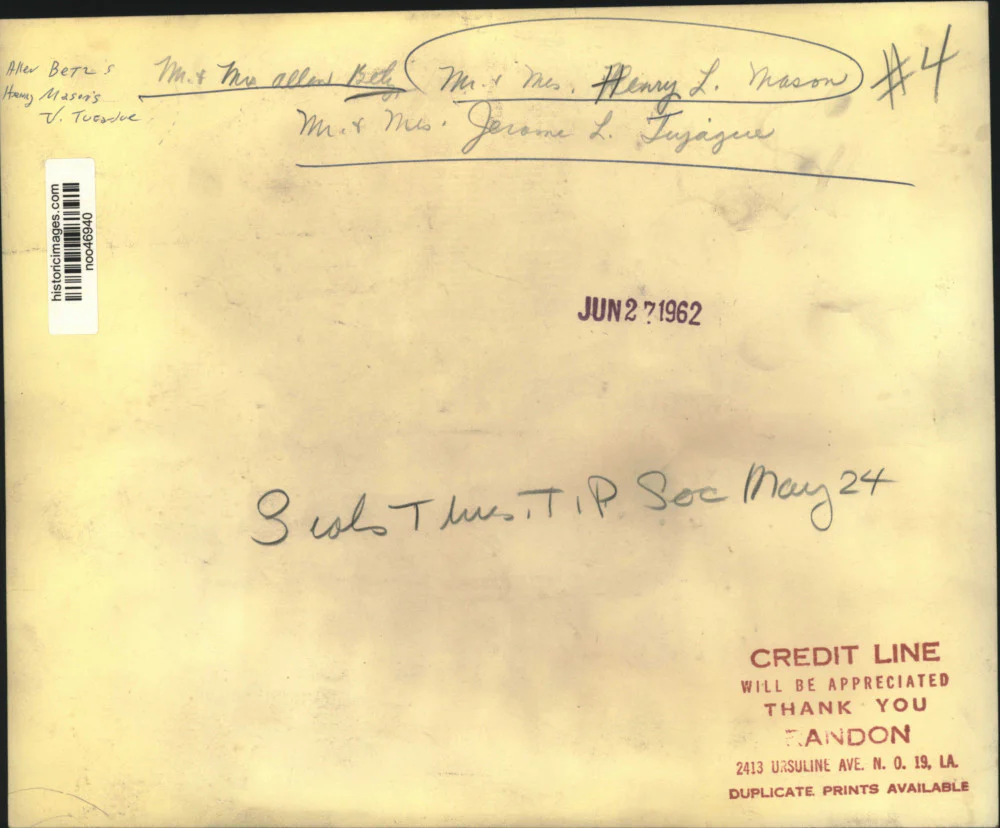 Allen Betz's
Henry Mason's
J. Tu
Mr. & Mrs Allen Betz Mr. & Mrs. Henry L. Mason #4
Mr. & Mrs. Jerome L. Tujague
historicimages.com
noo46940
JUN 2 7 1962
3 cols Thurs. T.P. Soc May 24
CREDIT LINE
WILL BE APPRECIATED
THANK YOU
RANDON
2413 URSULINE AVE. N. O. 19, LA.
DUPLICATE PRINTS AVAILABLE